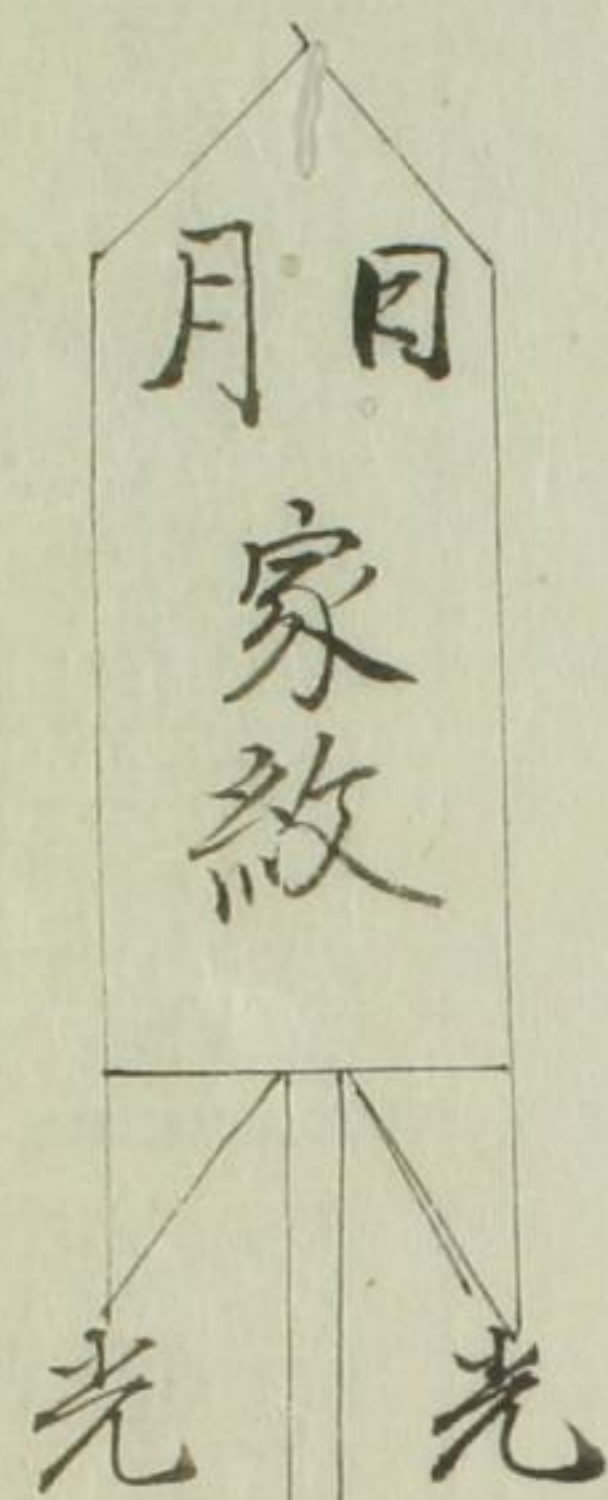 日
月
家紋
光
光